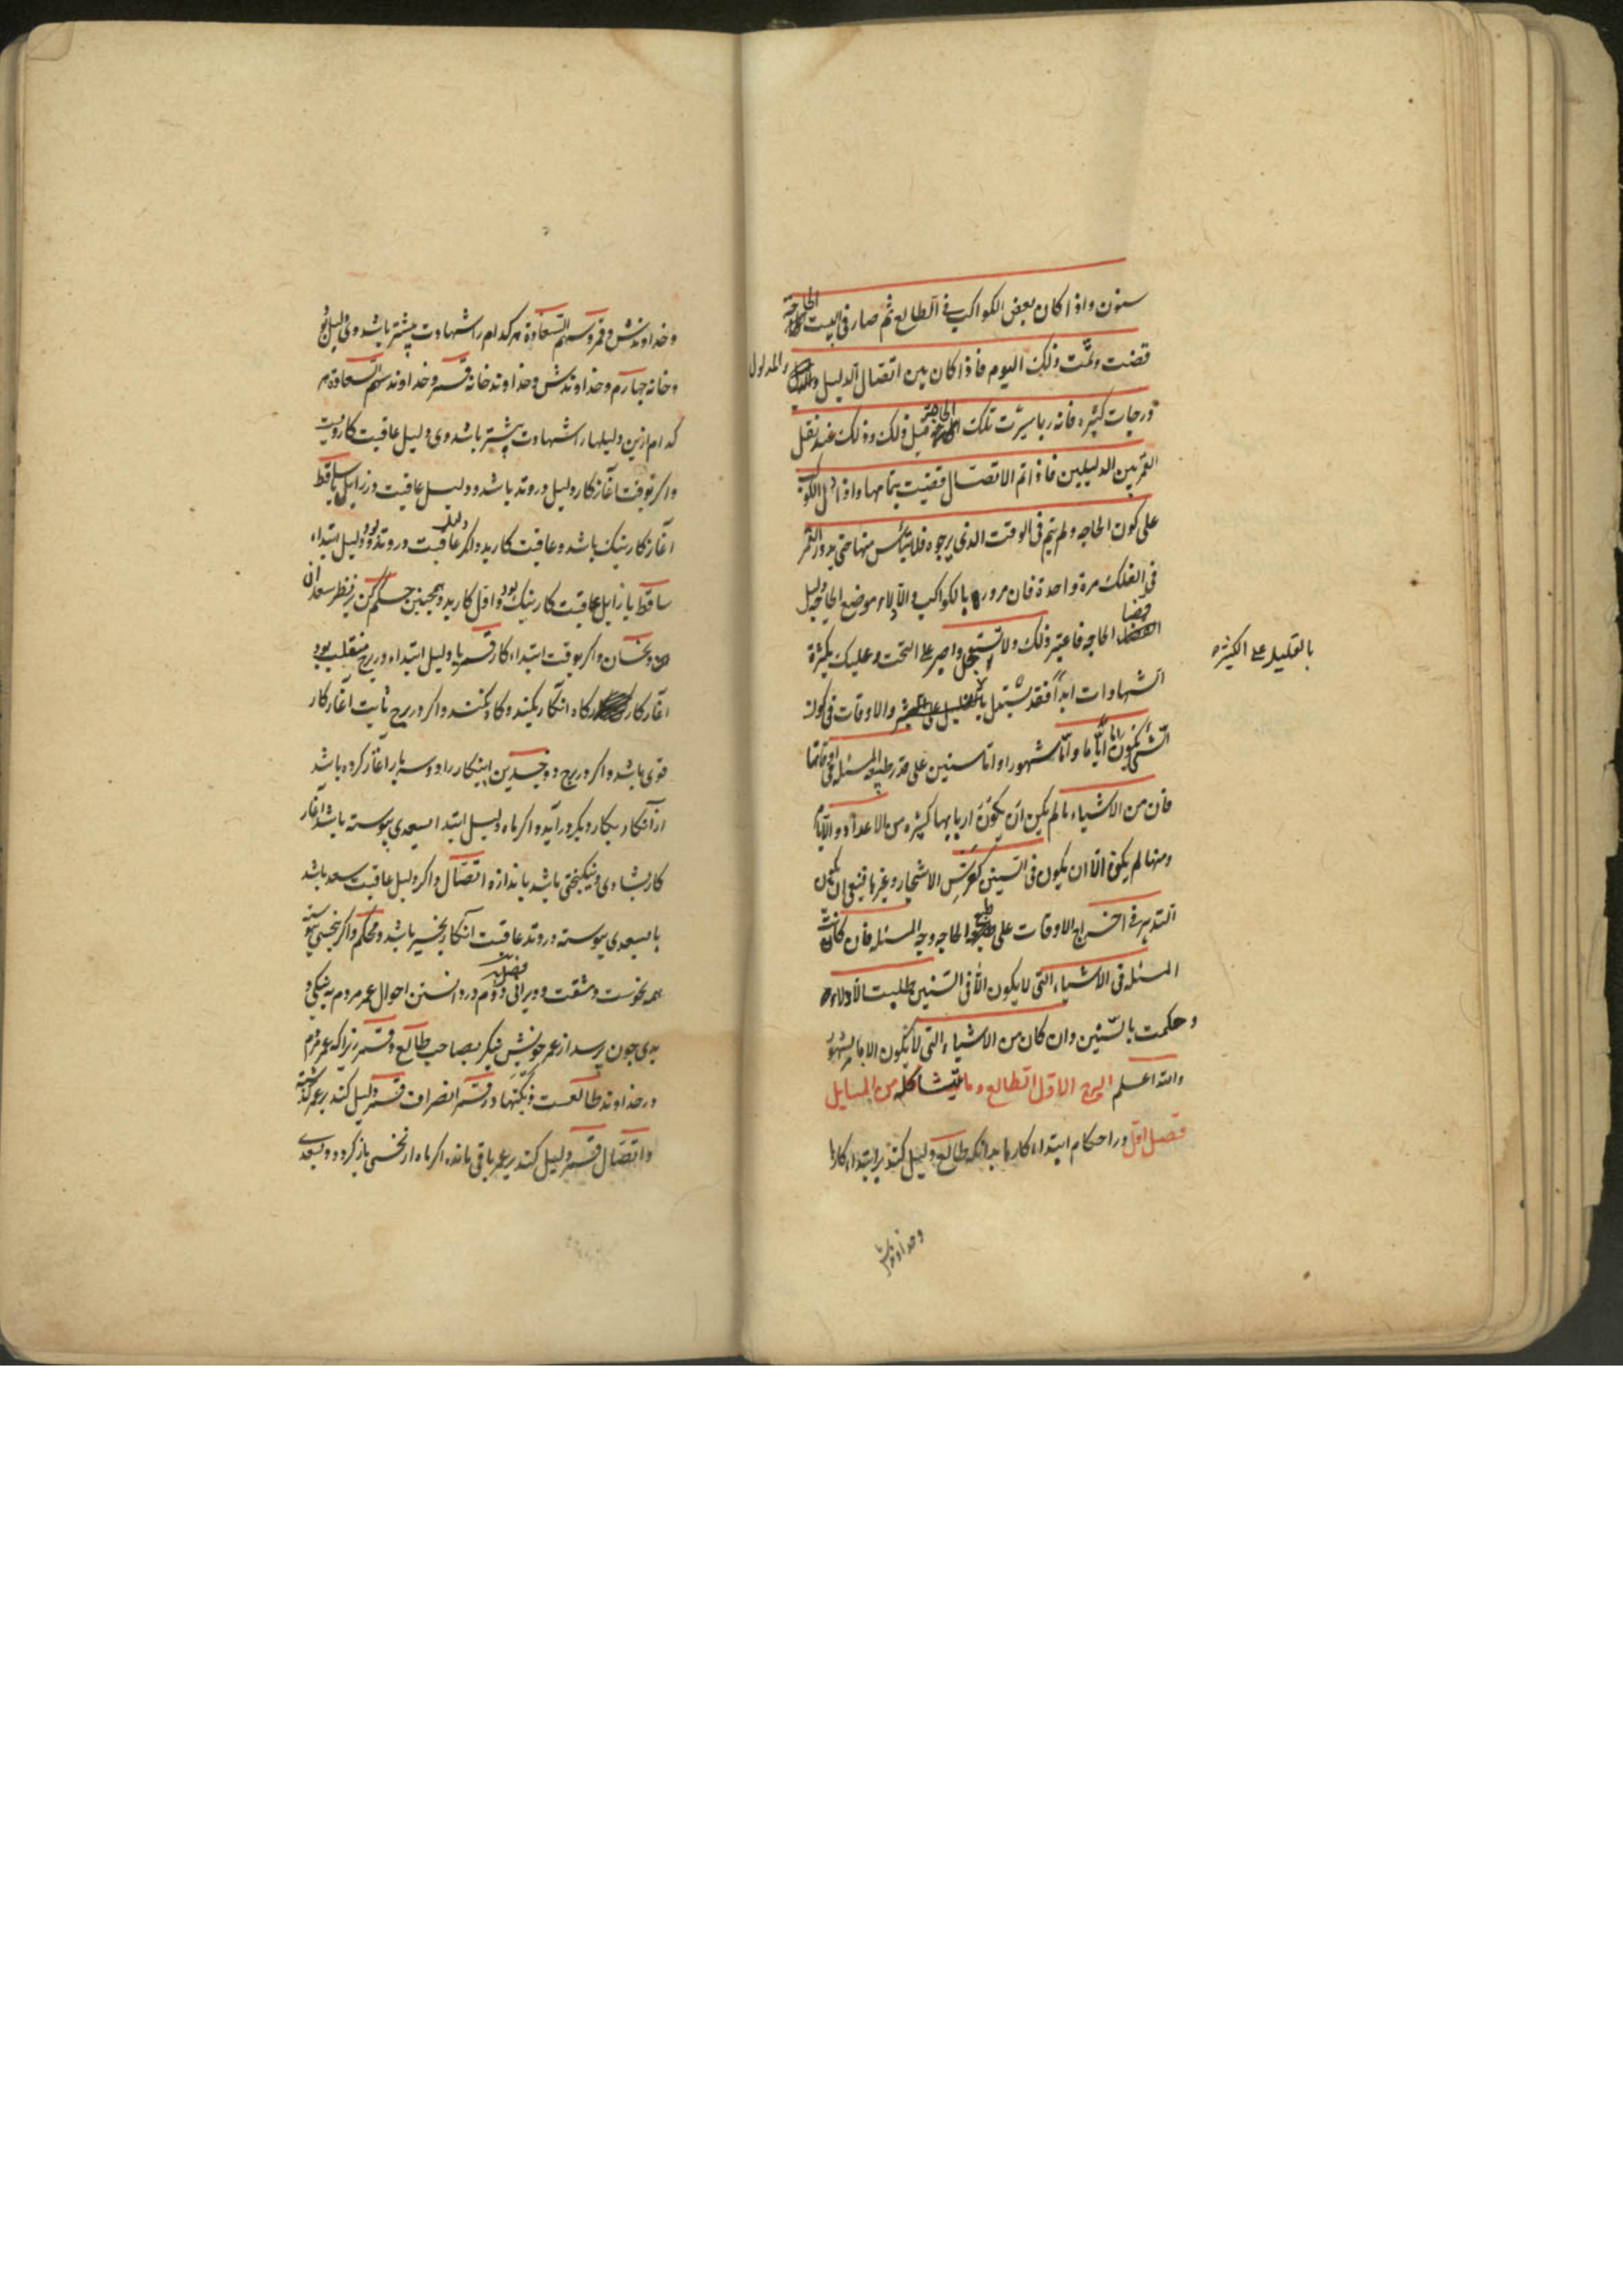 سنون واذا كان بعض الكواكب فى الطالع ثم صار فى البيت الحاجة
قضت وتمّت ذلك اليوم فاذا كان بين اتصال الدليل والمدلول
درجات كثيره فانه ربما تلك الحاجة قبل ذلك وذلك عند نقل
القمر بين الدليلين فاذا تم الاتصال قضيت بتمامها واذا دل الكوكب
على كون الحاجه ولم يتم فى الوقت الذى يرجوه فلا تيأس منها حتى يدور القمر
فى الفلك مرة واحدة فان مروره بالكواكب والادلاء موضع الحاجه دليل
قضا الحاجه فاعتبر ذلك ولا واصبر على وعليك بكثرة
الشهادات ابداً فقد يستدل والاوقات فى كون
بالقليل على الكثيره
الشئ يكون اياما واما شهورا واما سنين على قدر طبيعه المسئله واوقاتها
فان من الاشياء ما لم يكن ان يكون اربابها كثيره من الاعداد والايام
ومنها لم يكن الا ان يكون فى السنين كغرس الاشجار وغيرها فينبغى ان يكون
التدبير فى اخراج الاوقات على طبع الحاجه وجه المسئله فان كانت
المسئله فى الاشياء التى لا يكون الا فى السنين طلبت الادلاء
وحكمت بالسّنين وان كان من الاشياء التى لا يكون الا بالشهور
والله اعلم البرج الاول الطالع وما يتشاكله من المسايل
فصل اول در احكام ابتداء كارها بدانكه طالع دليل كند بر ابتداء كارها
وخداوندش
وخداوندش وقمر وسهم السعادة هر كدام را شهادت بيشتر باشد وى دليل بود
وخانه چهارم وخداوندش وخداوند خانه قمر وخداوند سهم السعادة هر
كدام ازين دليلها را شهادت بيشتر باشد وى دليل عاقبت كار ويست
واكر بوقت آغاز كار دليل در وتد باشد ودليل عاقبت در زايل يا ساقط
آغاز كار نيك باشد وعاقبت كار بد واكر دليل عاقبت در وتد بود ودليل ابتداء
ساقط يا زايل عاقبت كار نيك بود واول كار بد وهمچنين حكم كن بر نظر سعدان
ونحسان واكر بوقت ابتداء كار قمر يا دليل ابتداء در برج منقلب بود
آغاز كار كاه آنكار بكنند وكاه نكنند واكر در برج ثابت آغاز كار
قوى باشد واكر در برج دو جسدين اينكار را دو سه بار آغاز كرده باشد
از آنكار بكار ديكر در آيد واكر ماه دليل ابتدا بسعدى پيوسته باشد آغاز
كار بشادى ونيكبختى باشد باندازه اتصال واكر دليل عاقبت سعد باشد
يا بسعدى پيوسته در وتد عاقبت آنكار بخير باشد ومحكم واكر بنحسى پيوسته
همه نحوست ومشقت وويرانى فصل دوم در دانستن احوال عمر مردم به نيكى و
بدى چون پرسد از عمر خويش بنكر بصاحب طالع وقمر زيرا كه عمر مردم
در خداوند طالعست ونكبتها در قمر انصراف قمر دليل كند بر عمر كذشته
واتصال قمر دليل كند بر عمر باقى مانده اكر ماه از نحسى باز كردد وبسعدى